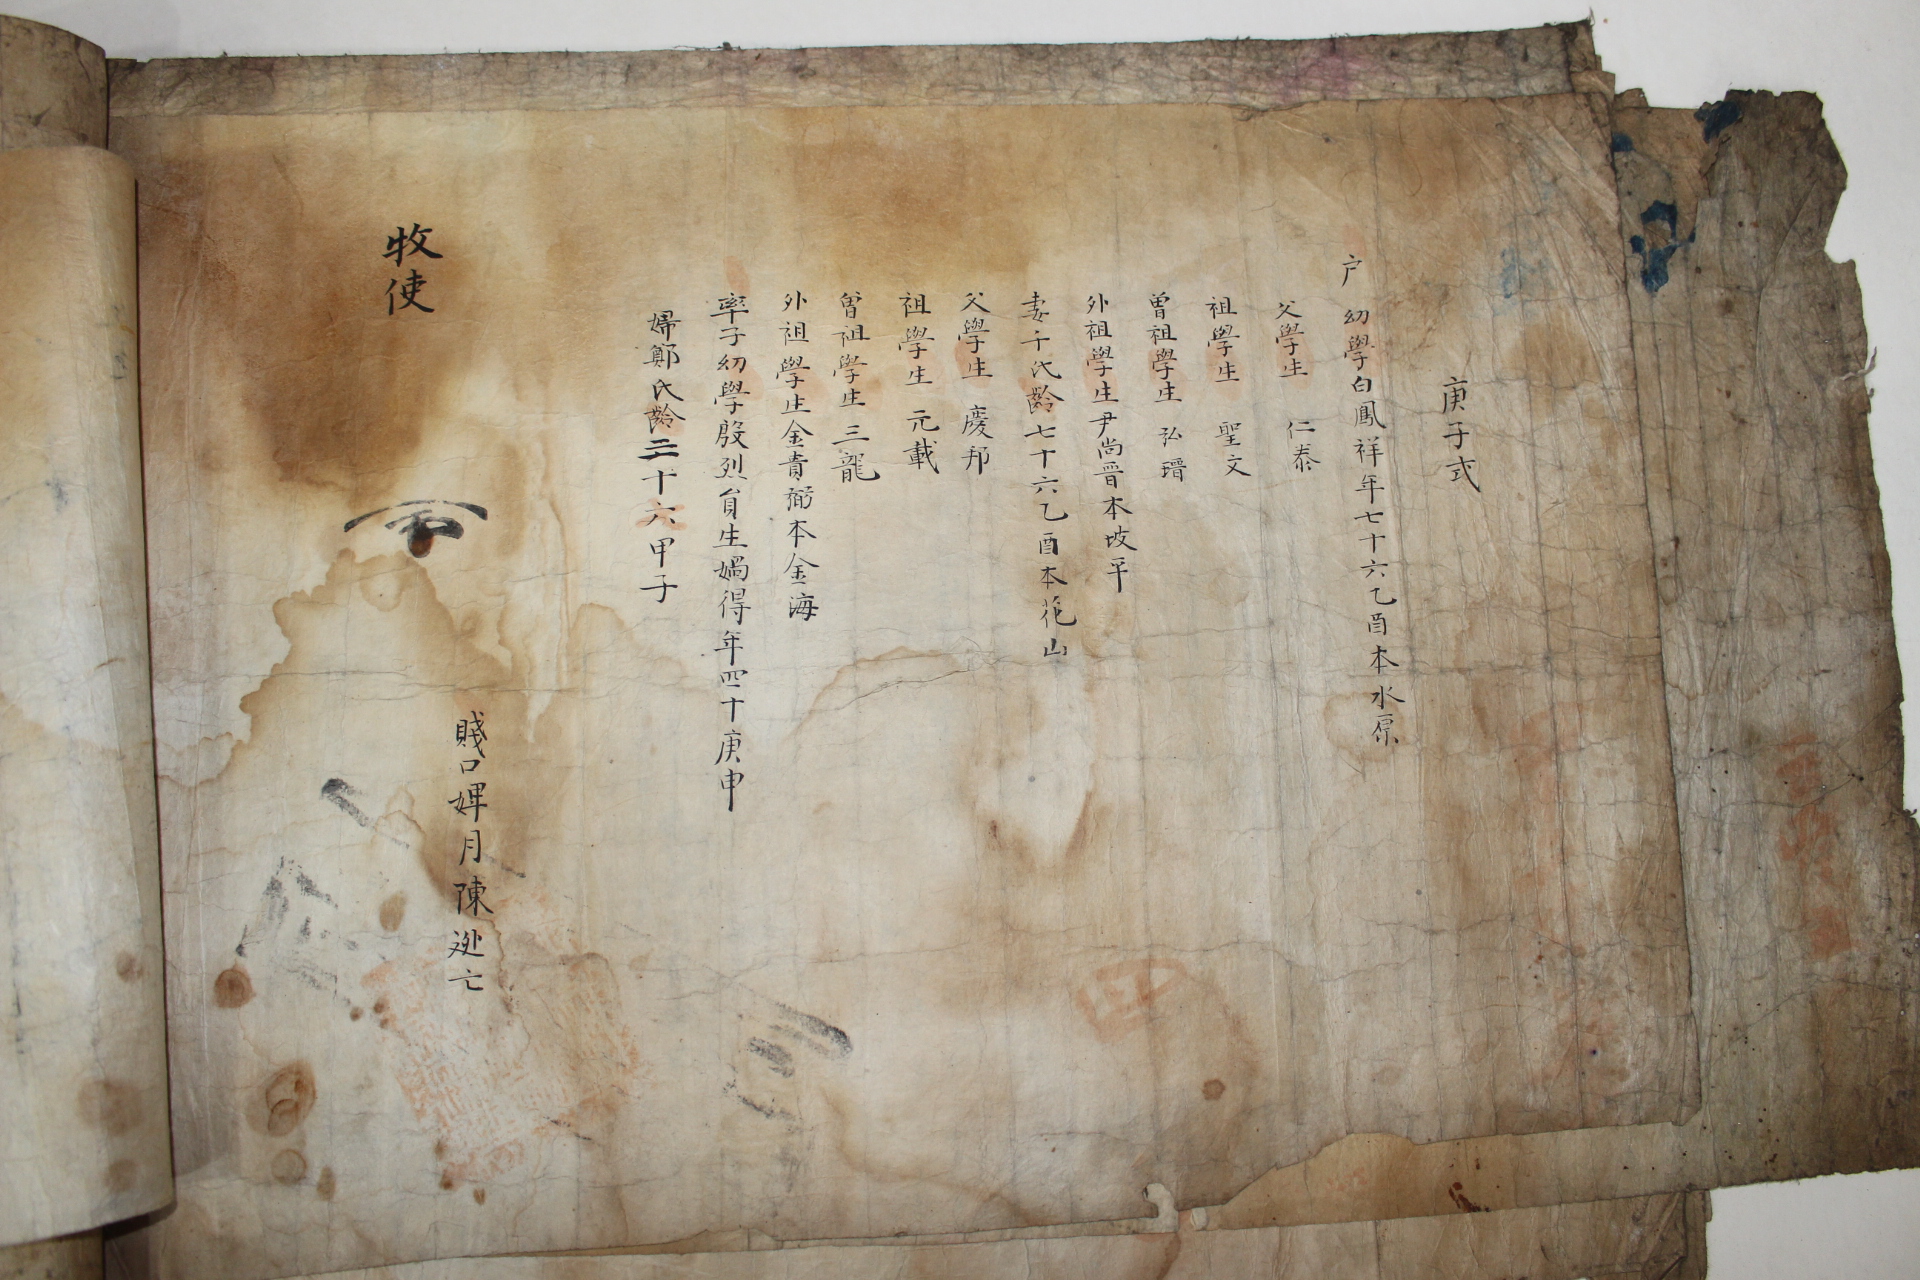 庚子式
户 幼學白鳳祥年七十六乙酉本水原
父學生 仁泰
祖學生 聖文
曾祖學生 弘瑨
外祖學生尹尚晋本坡平
妻千氏齡七十六乙酉本花山
父學生 慶邦
祖學生 元載
曾祖學生 三龍
外祖學生金貴弼本金海
率子幼學殷烈貟生媧得年四十庚申
婦鄭氏齡三十六甲子
賤口婢月陳逃亡
牧使